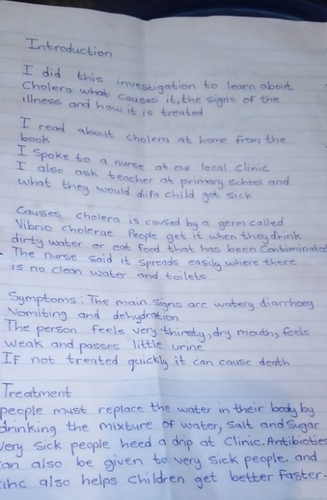 Introduction
I did this investigation to learn about
Cholera what causes it, the signs of the
illness and how it is treated
I read about cholera at home from the
book
I spoke to a nurse at our local clinic
I also ask teacher at primary school and
what they would difa child got sick
Causes cholera is caused by a germ called
Vibrio cholerae People get it when they drink
dirty water or eat food that has been Contiminated
The nurse said it spreads easily where there
is no clean water and toilets
Symptoms: The main signs are watery diarrhoea
Vomiting and dehydration
The person feels very thirsty, dry mouth, feels
weak and passes little urine
IF not treated quickly it can cause death
Treatment
people must replace the water in their body by
drinking the mixture of water, salt and sugar
Very sick people need a drip at clinic. Antibiotics
can also be given to very sick people. and
zinc also helps children get better faster.